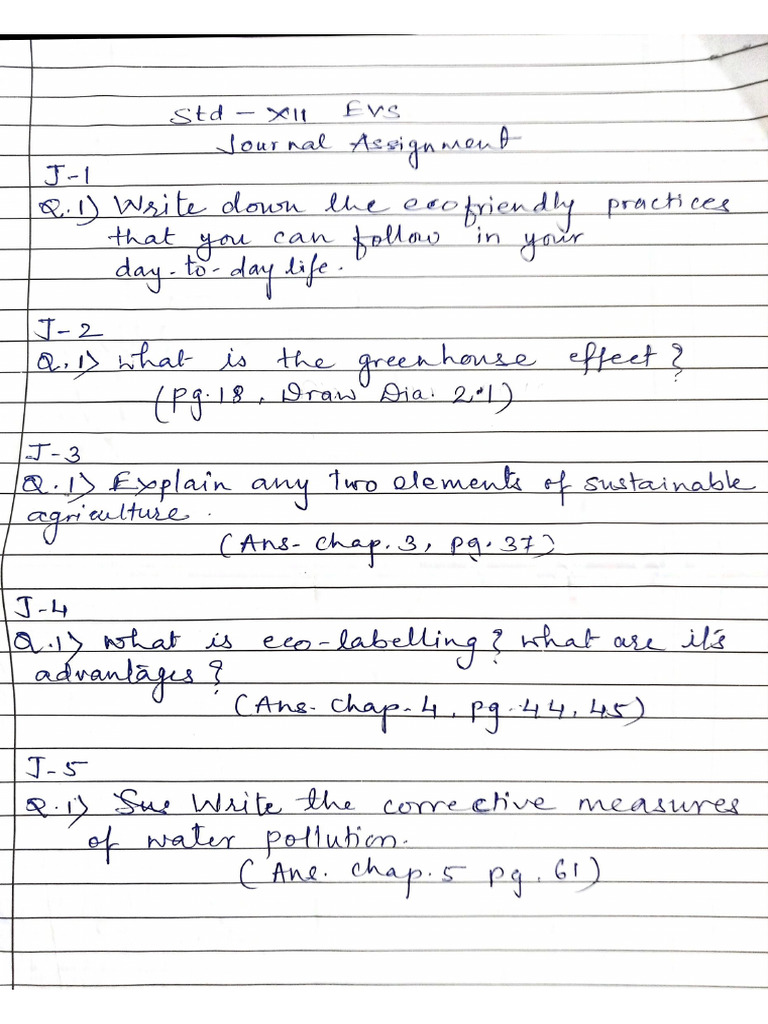 Std - XII EVS
Journal Assignment
J-1
Q.1) Write down the ecofriendly practices
that you can follow in your
day-to-day life.
J-2
Q.1) What is the greenhouse effect?
(Pg.18, Draw Dia. 2.1)
J-3
Q.1) Explain any two elements of sustainable
agriculture.
(Ans- chap.3, pg.37)
J-4
Q.1) What is eco-labelling? What are it's
advantages?
(Ans- chap-4, pg.44, 45)
J-5
Q.1) Sus Write the corrective measures
of water pollution.
(Ans. chap.5 pg.61)